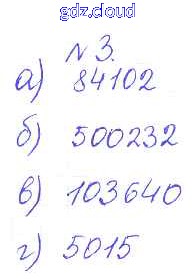 gdz.cloud
N 3.
а) 84102
б) 500232
в) 103640
г) 5015